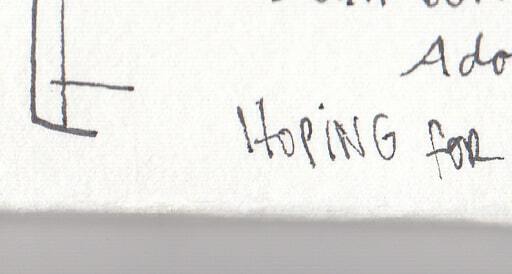 Ado
HOPiNG foR